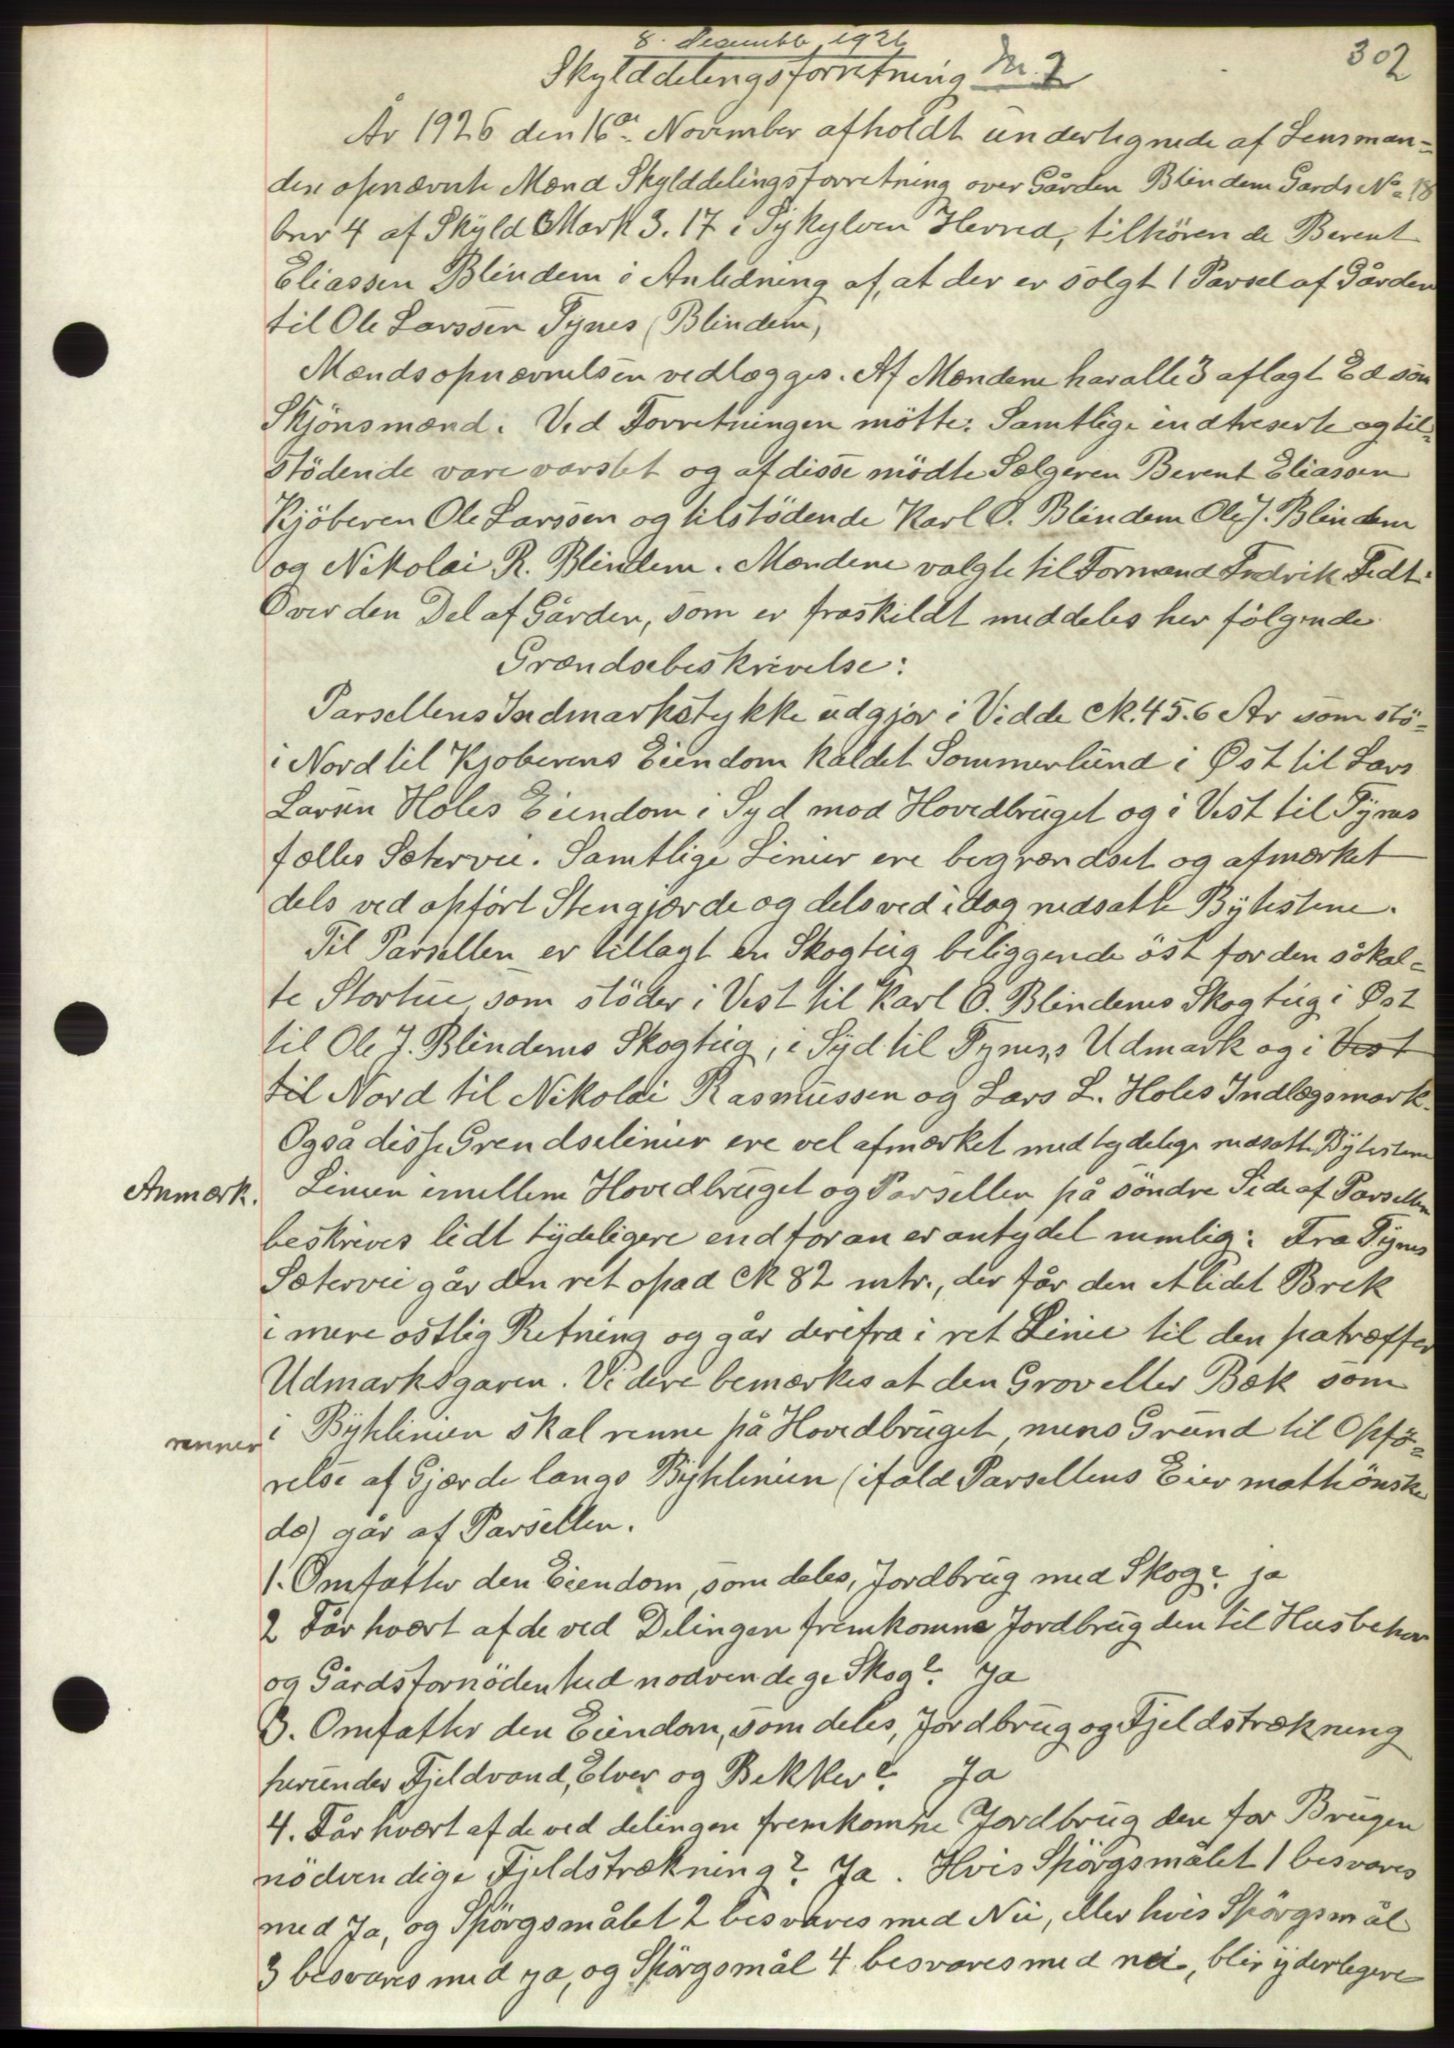 8. Desembb. 1926
302
Skylddelingsforretning Nr. 2
År 1926 den 16de November afholdt undertegnede af Lensman-
den opnævnte Mænd Skylddelingsforretning over Gården Blindem Gards No 18
bnr 4 af Skyld Mark 3.17 i Sykylven Herred, tilhörende Berent
Eliassen Blindem i Anledning af, at der er solgt 1 Parsel af Gården
til Ole Larssen Tynes (Blindem,
Mændsopnævnelsen vedlægges. Af Mændene har alle 3 aflagt Ed som
Skjönsmænd. Ved Forretningen mötte: Samtlige indtreserte og til-
stödende vare varslet og af disse mödte Sælgeren Berent Eliassen
Kjöberen Ole Larssen og tilstödende Karl O. Blindem Ole J. Blindem
og Nikolai R. Blindem. Mændene valgte til Formand Fredrik Fedt.
Over den Del af Gården, som er fraskildt meddeles her fölgende
Grændsebeskrivelse:
Parsellens Indmarkstykke udgjör i Vidde ck. 45.6 Ar som stö-
i Nord til Kjoberens Eiendom kaldet Sommerlund i Øst til Lars
Larsen Holes Eiendom i Syd mod Hovedbruget og i Vest til Tynes
fælles Sætervei. Samtlige Linier ere begrændset og afmærket
dels ved opfört Stengjærde og dels ved idag nedsatte Bytestene.
Til Parsellen er tillagt en Skogteig beliggende öst for den såkal-
te Stortue, som stöder i Vest til Karl O. Blindems Skogteig i Øst
til Ole J. Blindems Skogteig, i Syd til Tyness Udmark og i Vest
til Nord til Nikolai Rasmussen og Lars L. Holes Indlægsmark.
Også disse Grendselinier ere vel afmærket med tydelige nedsatte Bytestene
Anmærk. Linien imellem Hovedbruget og Parsellen på söndre Side af Parsellen
beskrives lidt tydeligere end foran er antydet nemlig: Fra Tynes
Sætervei går den ret opad ck 82 mtr., der får den et lidet Brek
i mere ostlig Retning og går derifra i ret Linie til den patræffer
Udmarksgaren. Videre bemærkes at den Grov eller Bæk som
renner i Bytelinien skal renne på Hovedbruget, mens Grund til Opfö-
relse af Gjærde langs Bytelinien (ifald Parsellens Eier mat önske
de) går af Parsellen.
1. Omfatter den Eiendom, som deles, Jordbrug med Skog? ja
2 Får hvært af de ved Delingen fremkomne Jordbrug den til Husbehov
og Gårdsfornödenhed nodvendige Skog? Ja
3. Omfatter den Eiendom, som deles, Jordbrug og Fjeldstrækning
herunder Fjeldvand, Elver og Bekker? Ja
4. Får hvært af de ved delingen fremkomne Jordbrug den for Brugen
nödvendige Fjeldstrækning? Ja. Hvis Spörgsmålet 1 besvares
med Ja, og Spörgsmålet 2 besvares med Nei, eller hvis Spörgsmål
3 besvares med ja, og Spörgsmål 4 besvares med nei, blir yderlegere